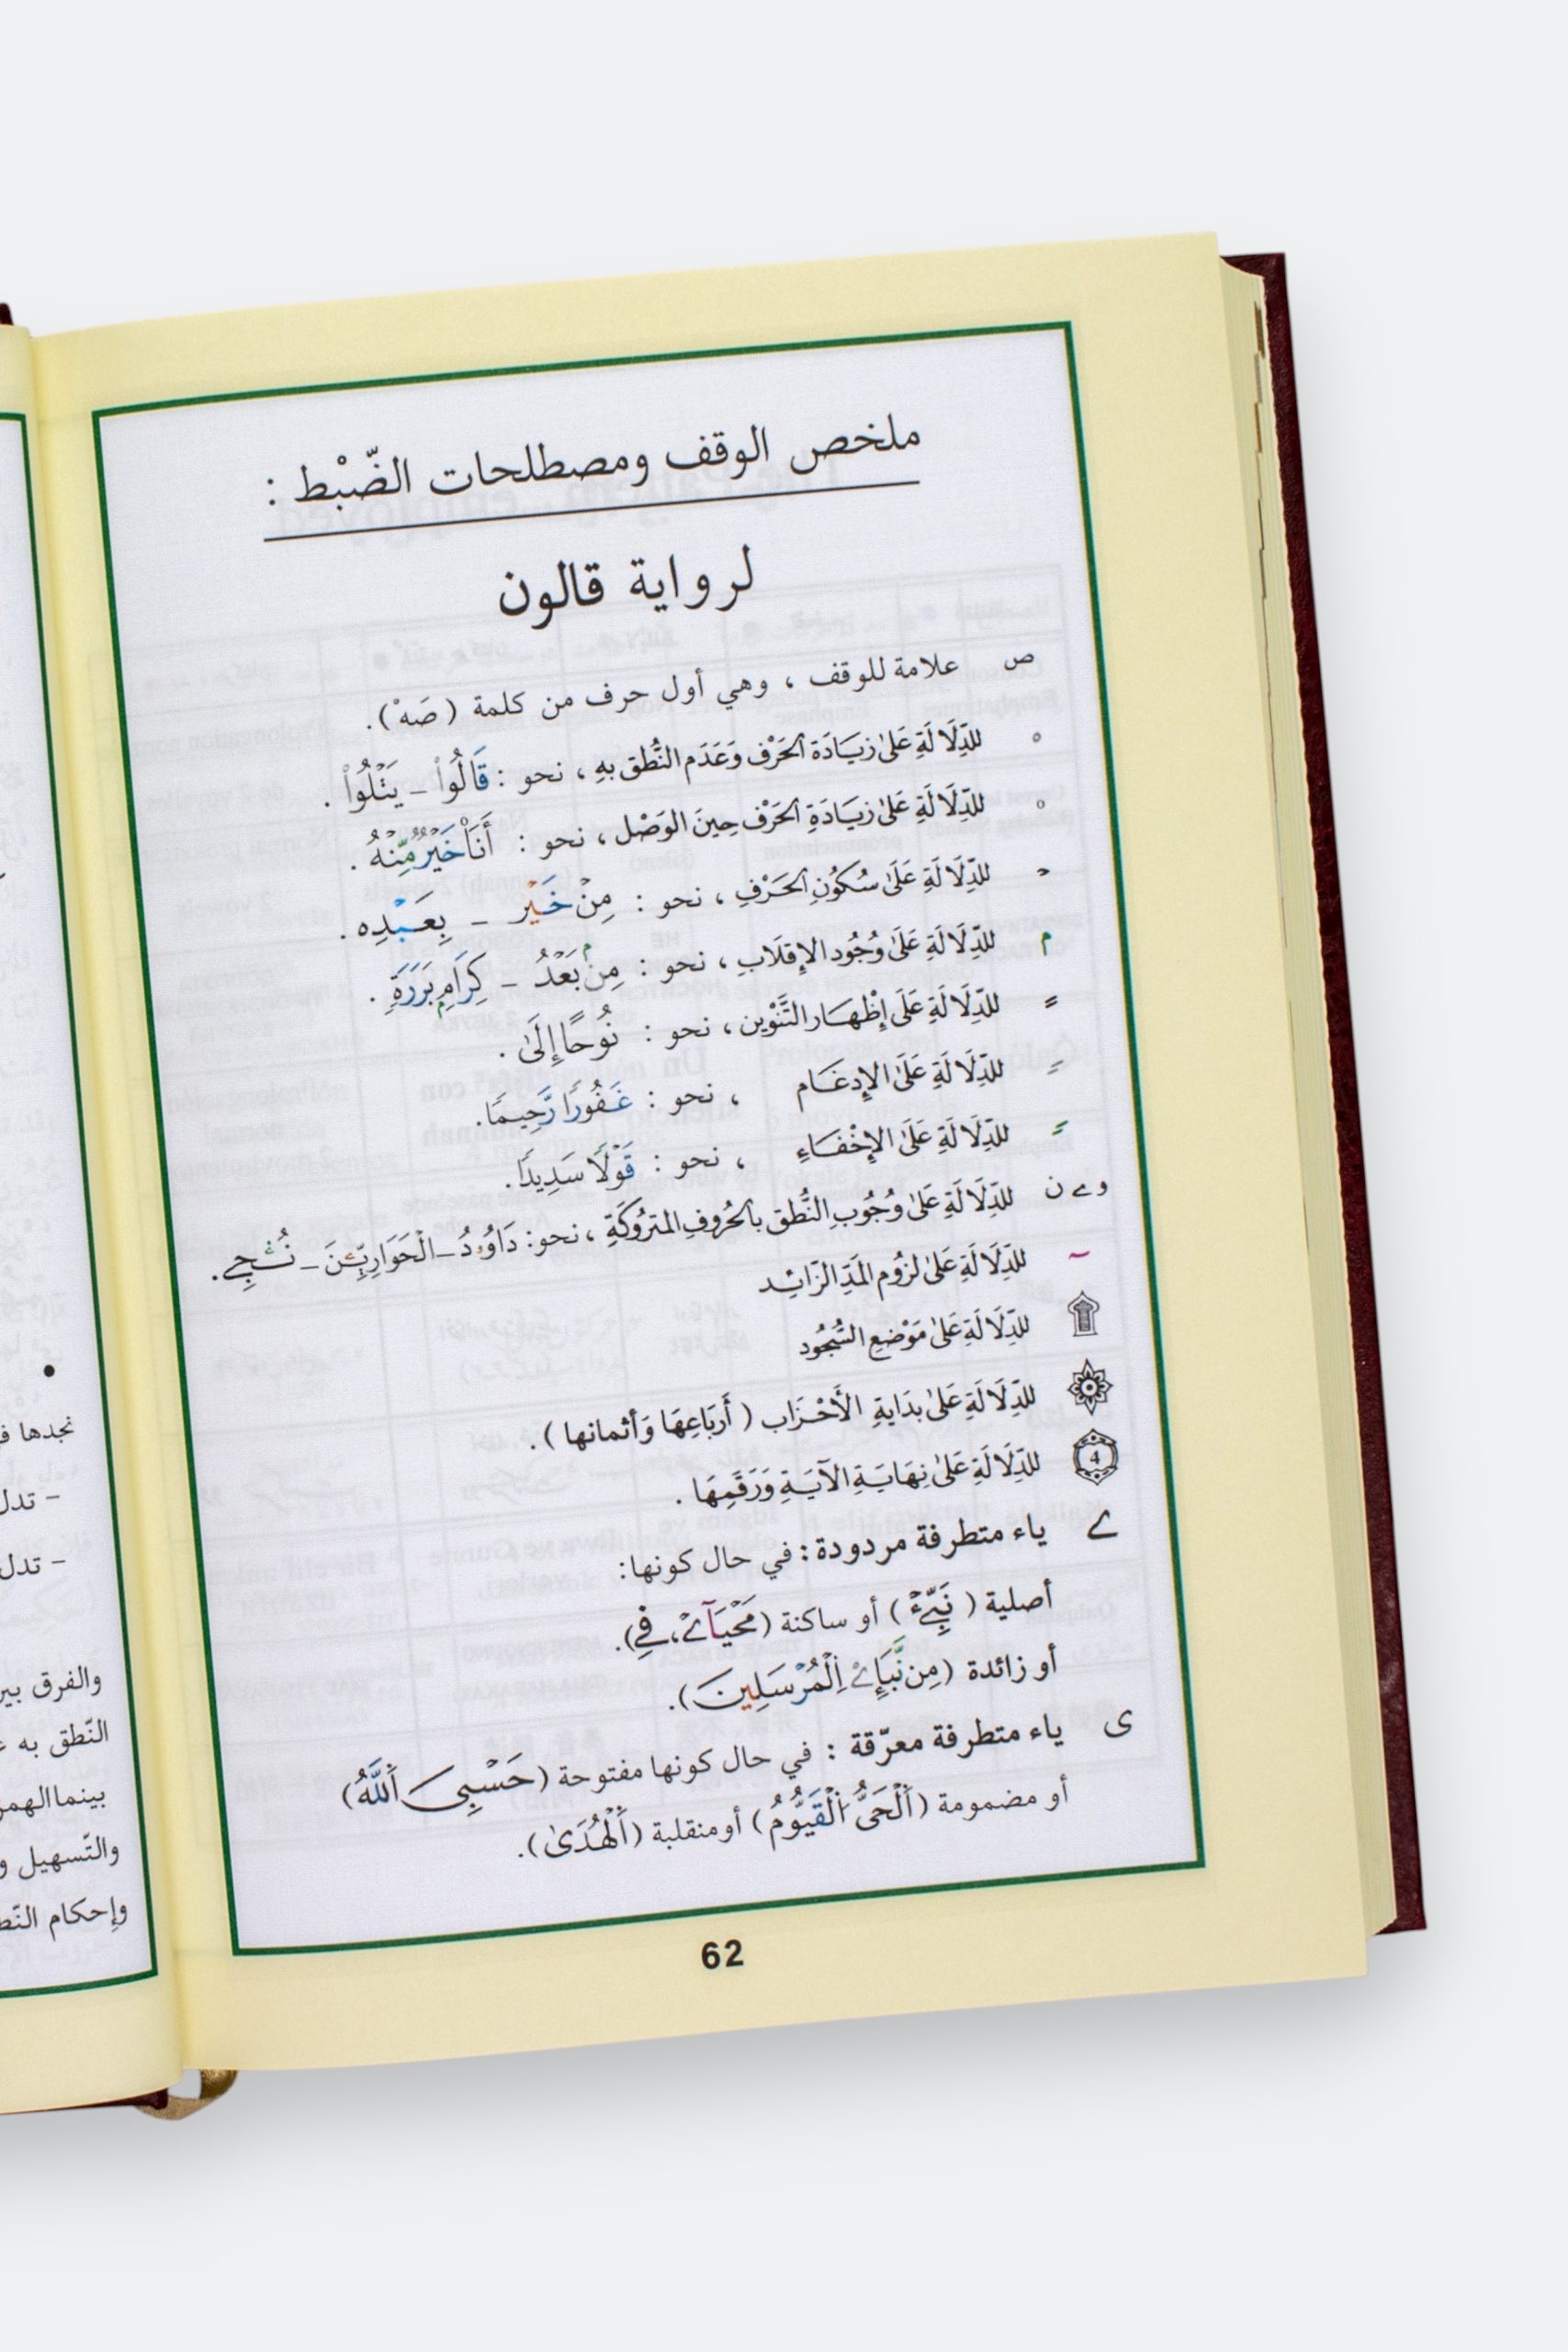 ملخص الوقف ومصطلحات الضّبْط :
لرواية قالون
ص علامة للوقف ، وهي أول حرف من كلمة (صَهْ).
ه للدِّلَالَةِ عَلىٰ زيَادَة الحَرْف وَعَدَم النُّطق بهِ ، نحو : قَالُواْ - يَتْلُواْ .
ه للدِّلَالَةِ عَلىٰ زيَادَةِ الحَرْف حِينَ الوَصْل ، نحو : أَنَا۠ خَيْرٌ مِّنْهُ .
للدِّلَالَةِ عَلَىٰ سُكُونِ الحَرْفِ ، نحو : مِنْ خَيْرٍ - بِعَبْدِه .
م للدِّلَالَةِ عَلَىٰ وُجُود الإقلَابِ ، نحو : مِنۢ بَعْدُ - كِرَامِۭ بَرَرَةٍ .
للدِّلَالَةِ عَلَى إظْهَار التَّنْوِين ، نحو : نُوحًا إِلَىٰ .
للدِّلَالَةِ عَلَىٰ الإدغَام ، نحو : غَفُورًا رَّحِيمًا.
للدِّلَالَةِ عَلَىٰ الإخْفَاءِ ، نحو : قَوْلًا سَدِيدًا.
و ے ن للدِّلَالَةِ عَلىٰ وُجُوبِ النُّطق بالحُروفِ المتروُكَةِ ، نحو: دَاوُۥدُ - الْحَوَارِيِّـۧنَ - نُـۨجِے.
~ للدِّلَالَةِ عَلىٰ لزُوُم المَدِّ الزَّائِد
۩ للدِّلَالَةِ عَلىٰ مَوْضِعِ السُّجُود
۞ للدِّلَالَةِ عَلىٰ بدَايَةِ الأَحْزَاب ( أَربَاعِهَا وَأثمانها ).
4 للدِّلَالَةِ عَلىٰ نِهَايَةِ الآيَةِ وَرَقَمِهَا .
ے ياء متطرفة مردودة : في حال كونها:
أصلية ( نَبِےٓءٌ ) أو ساكنة (مَحْيَآےْ، فِے).
أو زائدة (مِن نَّبَإِےْ اِلْمُرْسَلِينَ).
ى ياء متطرفة معرّقة : في حال كونها مفتوحة (حَسْبِىَ اَللَّهُ)
أو مضمومة (اَلْحَىُّ اَلْقَيُّومُ) أو منقلبة (اَلْهُدَىٰ).
62
نجدها
- تدل
- تدل
والفرق
النّطق به
بينما
والتّسهيل
وإحكام